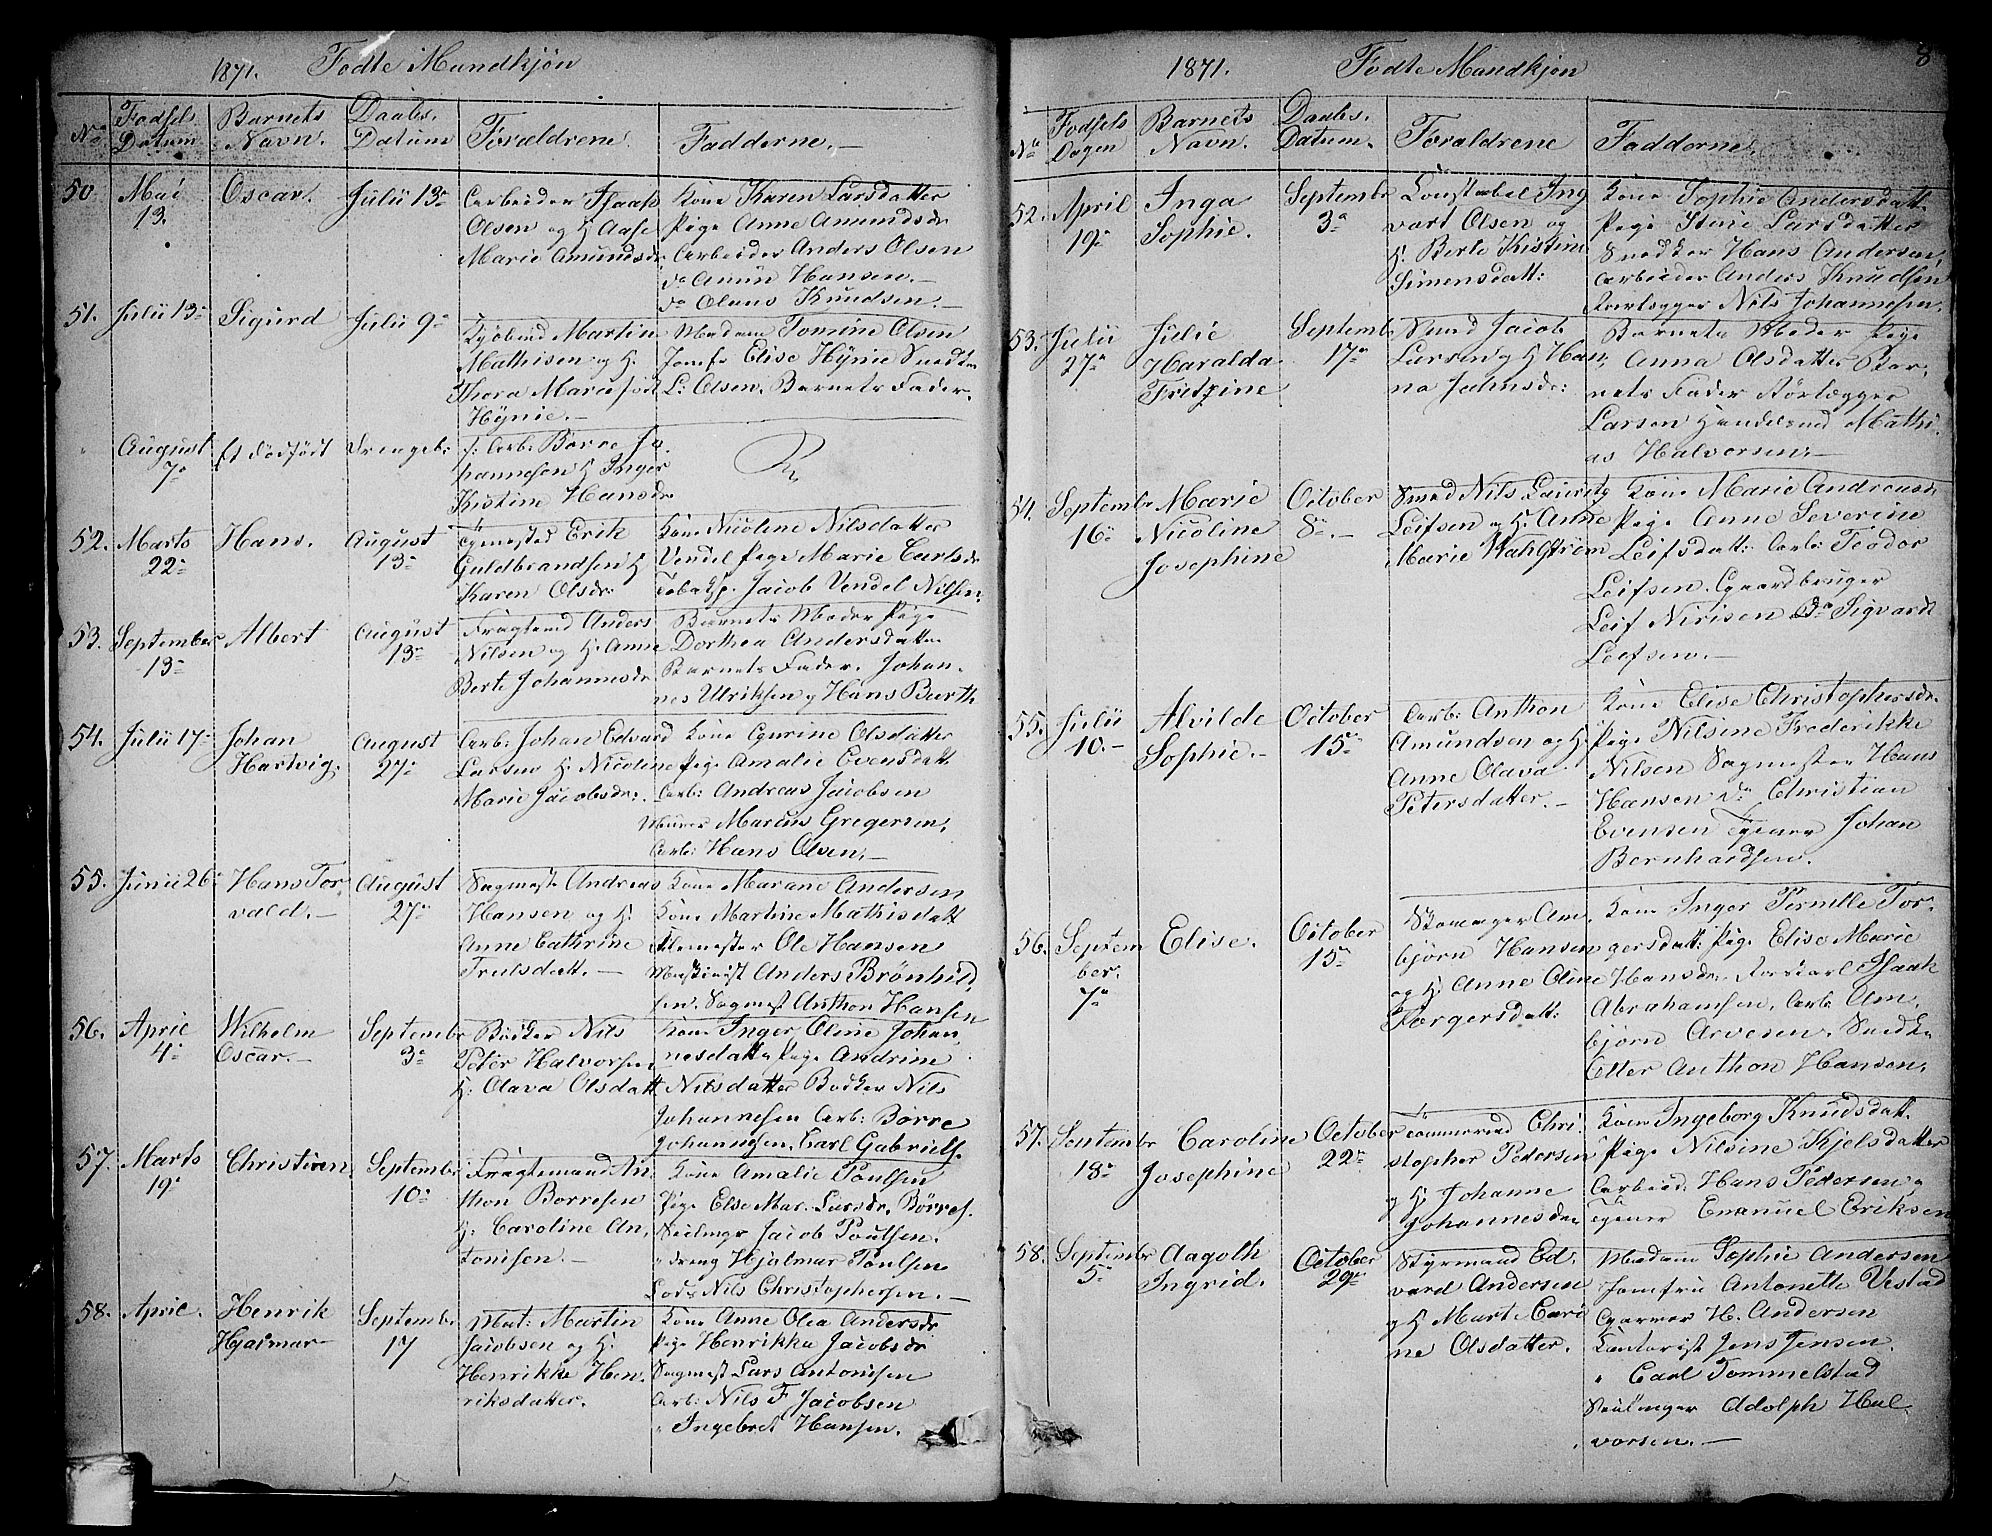 1871. Fødte Mandkjøn
No Fødsels Datum Barnets Navn. Daabs. Datum Forældrene. Fadderne. —
50 Mai 13. Oscar. Julii 13
Arbeider Isaak
Olsen og H Aase
Marie Amundsdr
Kone Karen Larsdatter
Pige Anne Amundsdr
Arbeider Anders Olsen
do Hansen. —
do Olaus Knudsen. —
51. Julii 13 Sigurd Julii 9
Kjøbmd Martin
Mathisen og H.
Thora Marie født
Hÿnie. —
Madam Tomine Olsen
Jomfr Elise Hÿnie
L. Olsen. Barnets Fader.
August 7 Et dødfødt Drengeb:
f: Arb: Børre Jo
hannesen H Inger
Kistine Hansdr
52. Marts 22 Hans. August 13
Erik
Guldbrandsen H
Karen Olsdr
Kone Nicoline Nilsdatter
Vendel Pige Marie Carlsdr
Jacob Vendel Nilsen.
53. September 13 Albert August 13
Fragtemd Anders
Nilsen og H. Anne
Berte Johannesdr
Barnets Moder Pige
Dorthea Andersdatter
Barnets Fader. Johan-
nes Ulriksen og Hans Barth
54. Julii 17 Johan Hartvig. August 27
Arb: Johan Edvard
Larsen H. Nicoline
Marie Jacobsdr:
Kone Gurine Olsdatter
Pige Amalie Evensdatt
Arb: Andreas Jacobsen
Murer Marcus Gregersen,
Arb: Hans Olsen. —
55. Junii 26 Hans Tor vald. — August 27
Sagmester Andreas
Hansen og H.
Anne Cathrine
Trulsdatt. —
Kone Marane Andersen
Kone Martine Mathisdatt
Ole Hansen
Maskinist Anders Brönhild
sen. Sagmest Anthon Hansen
56. April 4 Wilhelm Oscar. — September 3
Bødker Nils
Peter Halvorsen
H. Olava Olsdatt
Kone Inger Oline Johan,
nesdatter Pige Andrine
Nilsdatter Bødker Nils
Johannesen Arb: Börre
Johannesen. Carl Gabriels.
57. Marts 19 Christian September 10
Fragtemand An
thon Borresen
H: Caroline An,
tonisen. —
Kone Amalie Poulsen
Pige Else Mar. Larsdr. Børres.
Jacob Poulsen.
" dreng Hjalmar Poulsen
Lods Nils Christophersen. —
58. April. Henrik Hjalmar September 17
Mat: Martin
Jacobsen og H.
Henrikke Hen
riksdatter.
Kone Anne Olea Andersdr
Pige Henrikka Jacobsdr
Sagmest Lars Antonisen
Arb: Nils F Jacobsen
" Ingebret Hansen.
1871. Fødte Mandkjøn 8
No Fødsels Dagen Barnets Navn. Daabs. Datum. Forældrene Fadderne.
52. April 19 Inga Sophie. September 3
Constabel Ing
vart Olsen og
H. Berte Kistine
Simensdatt:
Kone Sophie Andersdatt.
Pige Stine Larsdatter
Snedker Hans Andersen,
Arbeider Anders Knudsen
Rørlegger Nils Johannesen.
53. Julii 27 Julie Haralda Fritzine September 17
Jacob
Larsen og H Han,
na Jahnsdr:
Barnets Moder Pige
Anna Olsdatter Bar,
nets Fader Rørlægger
Larsen Handelsmd Mathi,
as Halvorsen. —
54. September 16 Marie Nicoline Josephine October 8. —
Smed Nils Lauritz
Leifsen og H. Anne
Marie Wahlström
Kone Marie Andreasdr
Pige Anne Severine
Leifsdatt: Arb: Teodor
Leifsen. Gaardbruger
Leif Nirisen do Sigvardt
Leifsen. —
55. Julii 10. — Alvilde Sophie. — October 15
Arb: Anthon
Amundsen og H.
Anne Olava
Petersdatter. —
Kone Elise Christophersdr.
Pige Nilsine Frederikke
Nilsen Sagmester Hans
Hansen do Christian
Evensen Johan
Bernhardsen.
56. Septem ber. 7 Elise. October 15
Am,
bjørn Hansen
og H. Anne Oline
Torgersdatt:
Kone Inger Pernille Tor-
gersdatt: Pige Elise Marie
Hansdr. Isaak
Abrahamsen, Arb: Am,
bjørn Arvesen. Snedke
Etter Anthon Hansen.
57. September 18 Caroline Josephine October 22
Tømmermd Chri,
stopher Pedersen
og H. Johanne
Johannesdr
Kone Ingeborg Knudsdatt.
Pige Nilsine Kjelsdatter
Arbeid: Hans Pedersen
Emanuel Eriksen
58. September 5 Aagoth Ingrid. October 29
Styrmand Ed,
vard Andersen
og H Mart. Cari
ne Olsdatter.
Madam Sophie Andersen
Jomfru Antonette Vestad
H. Andersen
Kontorist Jens Jensen
" Carl Tommelstad
Adolph Hal
vorsen. —